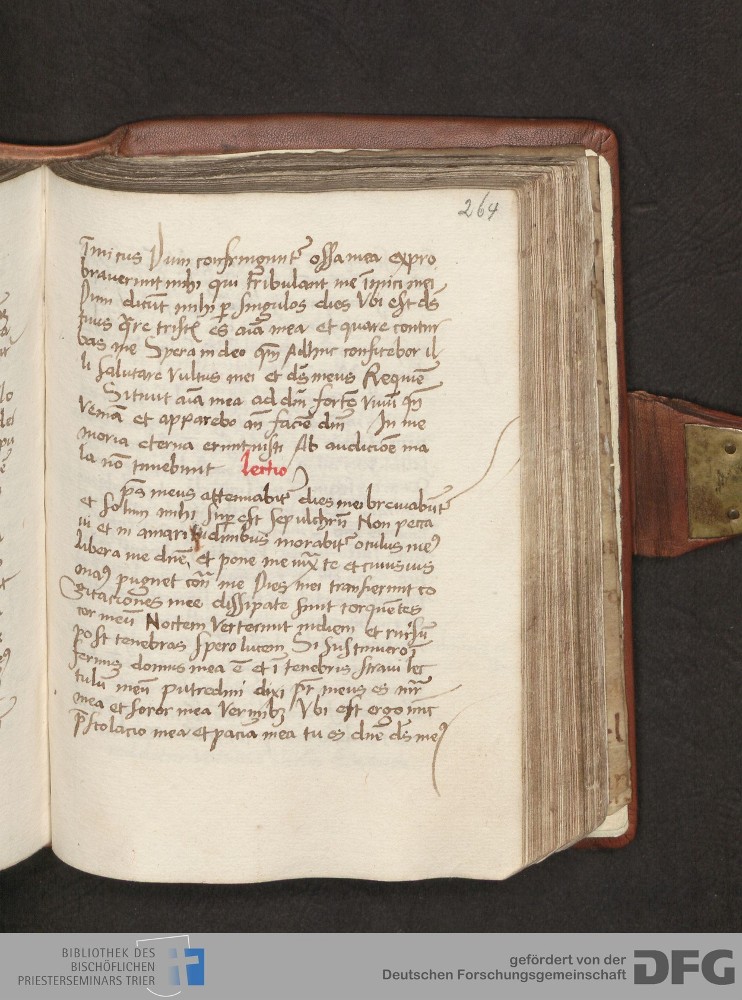 264
Īmicus Dum confringuntʳ ossa mea expro
braverunt mihi qui tribulant me īmici mei
Dum dicūt mihi ꝑ singulos dies Vbi est ds̄
tuus qre tristis es aīa mea et quare contur
bas me Spera in deo qm̄ Adhuc confitebor il
li salutare vultus mei et ds̄ meus Requiē
Sitiuit aīa mea ad dm̄ fortē viuū qn̄
veniā et apparebo an̄ faciē dm̄ In me
moria eterna erunt iusti Ab audicioē ma
la nō timebunt lectio
sp̄s meus attenuabitʳ dies mei breuiabūtʳ
et solum mihi suꝑest sepulchrū Non pecca
ui et in amaritudinibus morabitʳ oculus meꝰ
libera me dnē et pone me iuxᵃ te et cuiusuis
manꝰ pugnet cōn̄ me Dies mei transierunt co
gitaciones mee dissipate sunt torquētes
cor meū Noctem verterunt in diem et rursū
post tenebras spero lucem Si sustinuero ī
fernꝰ domus mea ē et ī tenebris straui lec
tulū meū putredini dixi pr̄ meus es mr̄
mea et soror mea vermibꝫ Vbi est ergo nūc
p̄stolacio mea et pacia mea tu es dnē ds̄ meꝰ
BIBLIOTHEK DES
BISCHÖFLICHEN
PRIESTERSEMINARS TRIER
gefördert von der
Deutschen Forschungsgemeinschaft
DFG